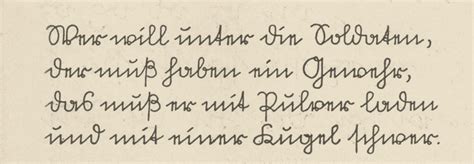 Wer will unter die Soldaten,
der muß haben ein Gewehr,
das muß er mit Pulver laden
und mit einer Kugel schwer.